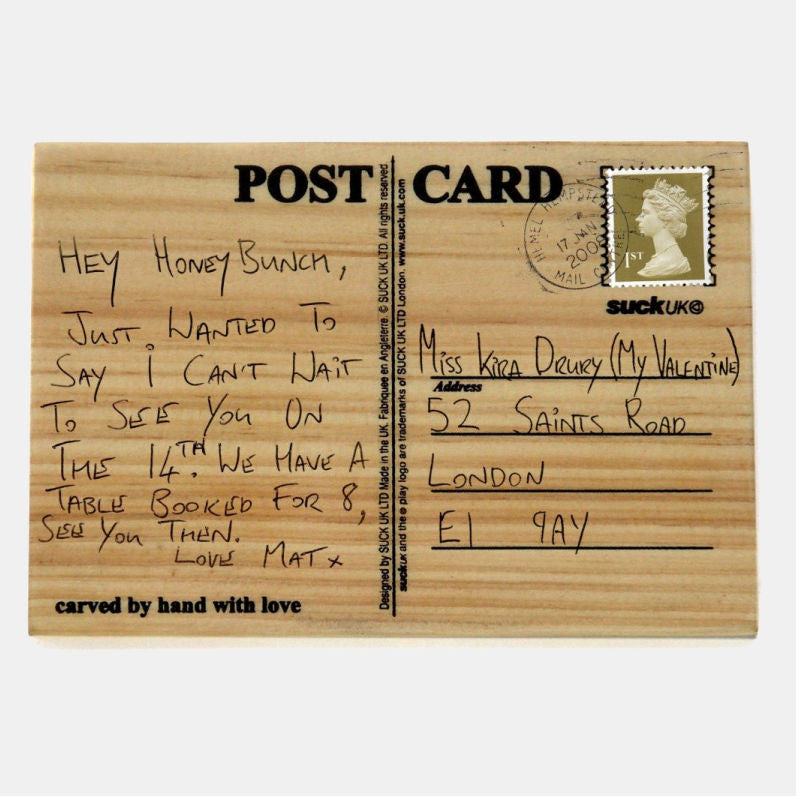 POST CARD
HEY HONEY BUNCH,
JUST WANTED TO
SAY I CAN'T WAIT
TO SEE YOU ON
THE 14TH. WE HAVE A
TABLE BOOKED FOR 8,
SEE YOU THEN.
LOVE MAT x
carved by hand with love
Designed by SUCK UK LTD Made in the UK. Fabriquee en Angleterre. © SUCK UK LTD. All rights reserved
suckUK and the play logo are trademarks of SUCK UK LTD London. www.suck.uk.com
HEMEL HEMPSTE
17 JAN
2008
MAIL C
1ST
suckUK
MISS KIRA DRURY (MY VALENTINE)
Address
52 SAINTS ROAD
LONDON
E1 9AY